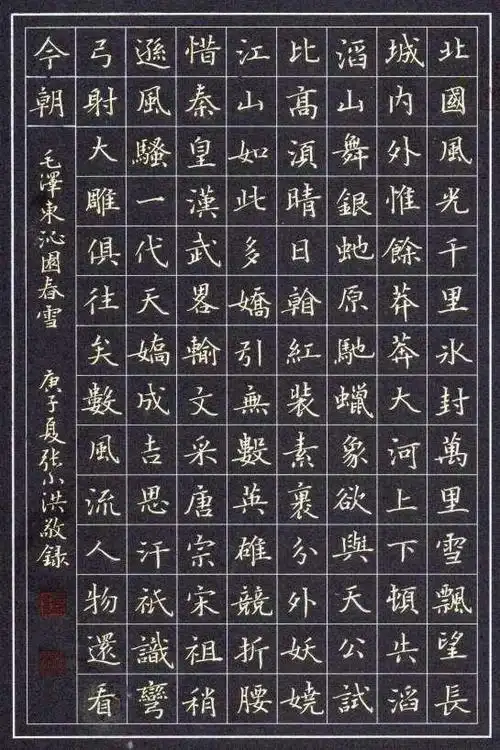 北國風光千里氷封萬里雪飄望長
城內外惟餘莽莽大河上下頓失滔
滔山舞銀虵原馳蠟象欲與天公試
比高湏晴日翰紅裝素裹分外妖嬈
江山如此多嬌引無數英雄競折腰
惜秦皇漢武畧輸文采唐宗宋祖稍
遜風騷一代天嬌成吉思汗祇識彎
弓射大雕俱往矣數風流人物還看
今朝
毛澤東沁園春雪 庚子夏張小洪敬錄